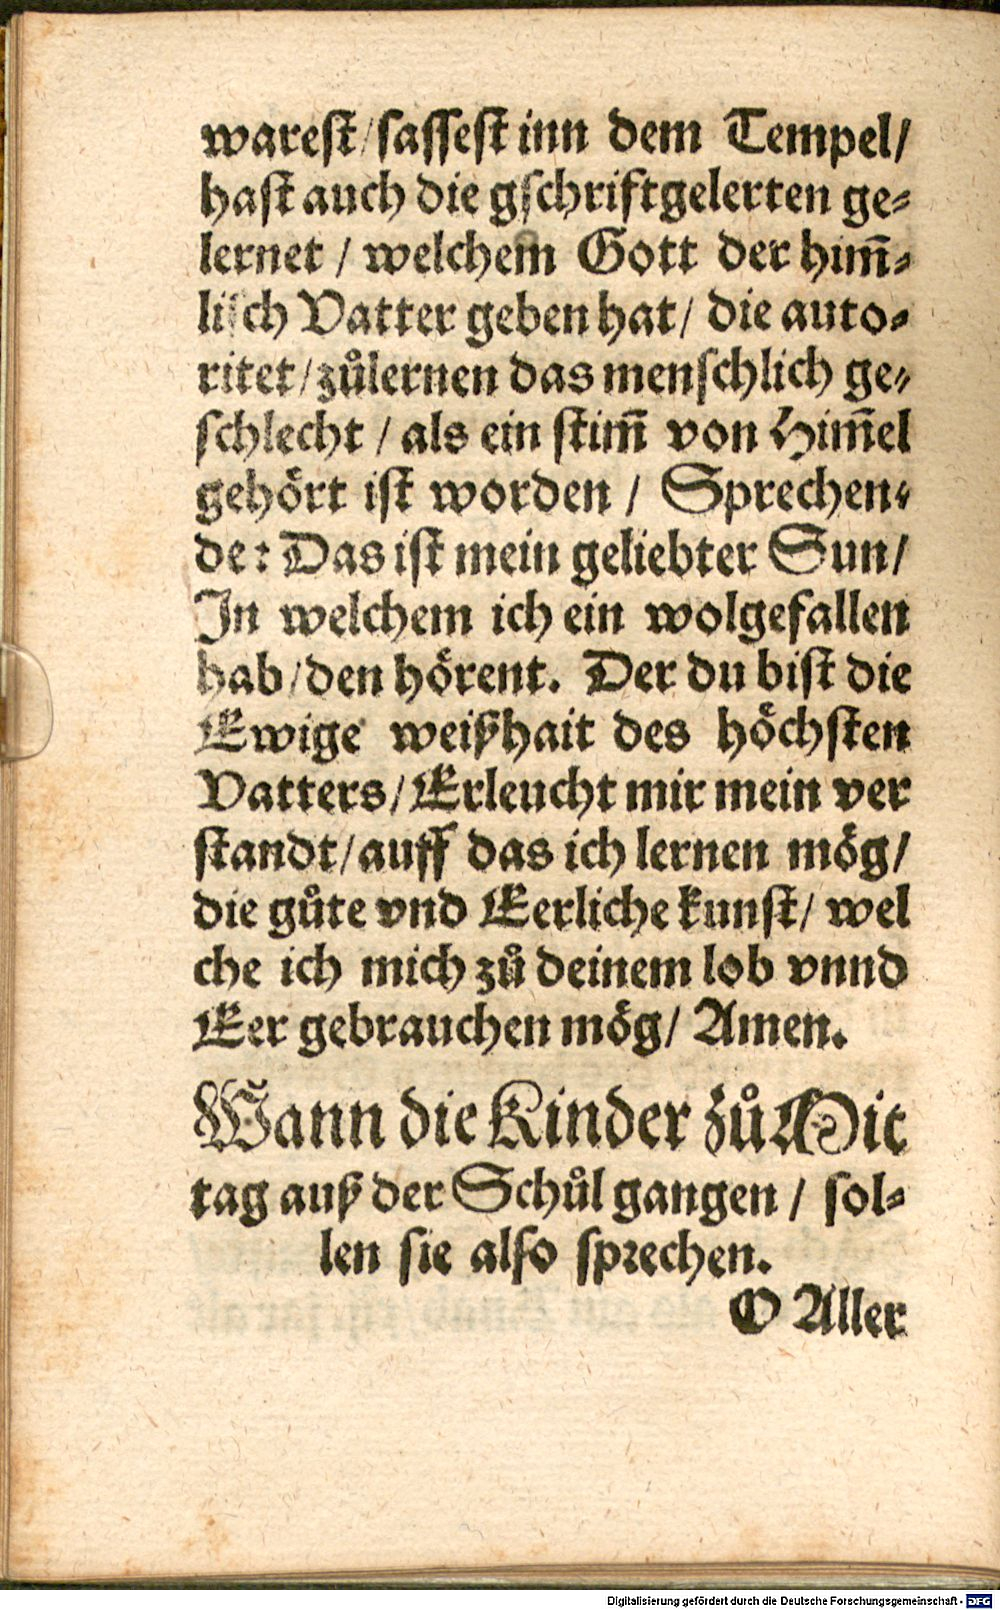 warest / sassest inn dem Tempel /
hast auch die gschriftgelerten ge⸗
lernet / welchem Gott der him̃⸗
lisch Vatter geben hat / die auto⸗
ritet / zůlernen das menschlich ge⸗
schlecht / als ein stim̃ von Him̃el
gehört ist worden / Sprechen⸗
de: Das ist mein geliebter Sun /
In welchem ich ein wolgefallen
hab / den hörent. Der du bist die
Ewige weißhait des höchsten
Vatters / Erleucht mir mein ver
standt / auff das ich lernen mög /
die gůte vnd Eerliche kunst / wel
che ich mich zů deinem lob vnnd
Eer gebrauchen mög / Amen.
Wann die Kinder zů Mit
tag auß der Schůl gangen / sol⸗
len sie also sprechen.
O Aller
Digitalisierung gefördert durch die Deutsche Forschungsgemeinschaft - DFG